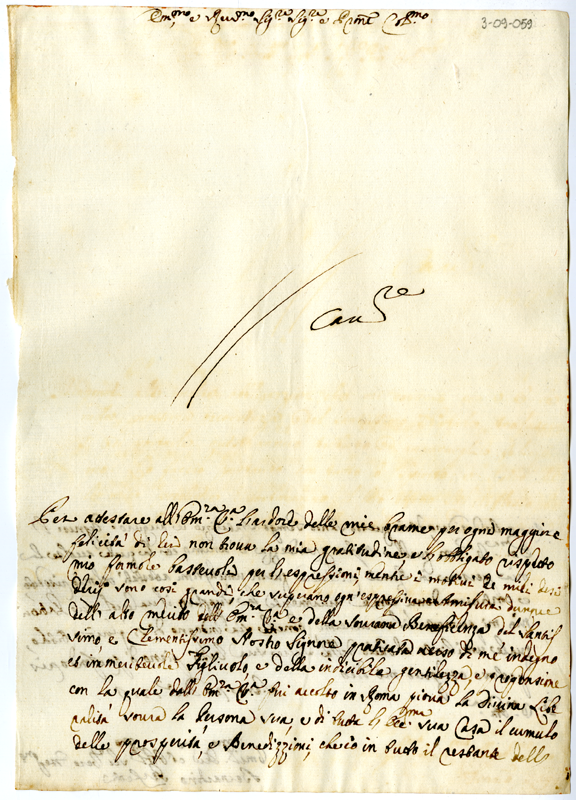 Em.mo e Rev.mo Sig.re Sig.re e Prone Col.mo
3-09-059
Per attestare all'Em.za V.a l'ardore delle mie brame per ogni maggiore
felicità di lei non trova la mia gratitudine, e l'obbligato rispetto
mio formole bastevoli per l'espressioni, mentre i motivi de miei desi
derij sono così grandi, che superano ogni espressione
dell'alto merito dell'Em.za V.a e della sovrana Beneficenza del Santis
simo, e Clementissimo Nostro Signore praticata verso di me indegno
et immeritevole Figliuolo e della indicibile gentilezza, e propensione
con la quale dall'Em.za V.a fui accolto in Roma piova la Divina Libe
ralità sovra la Persona sua, e di tutta l' sua Casa il cumulo
delle prosperità, e Benedizzioni, che io in tutto il restante dello